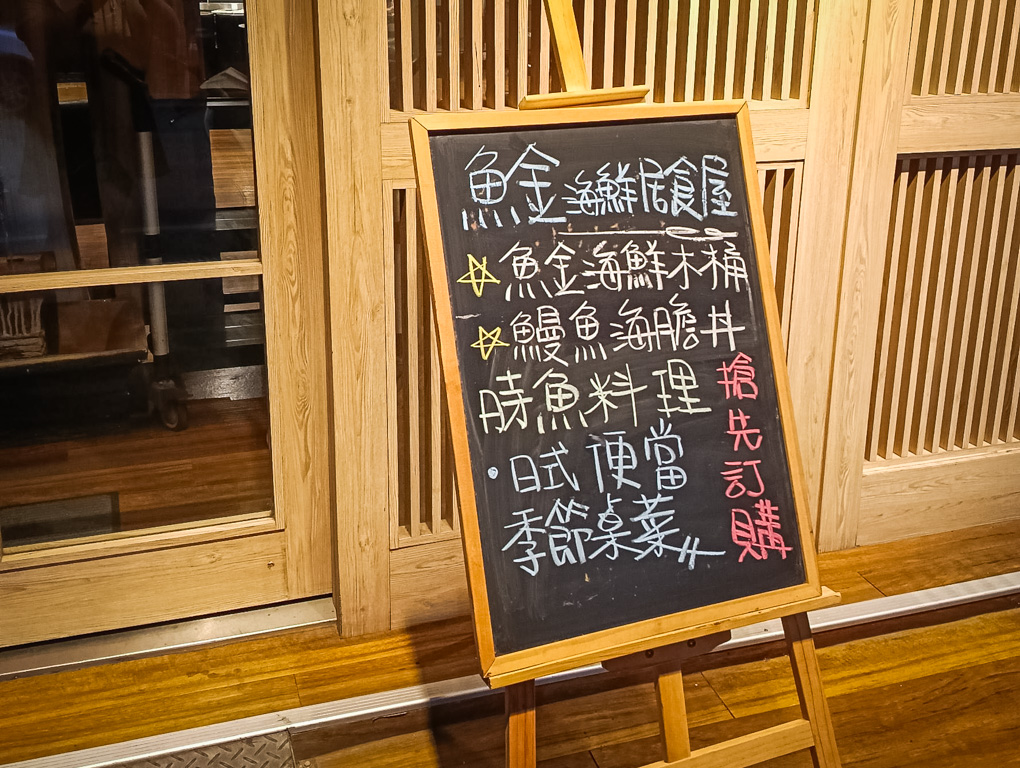 魚金海鮮居食屋
魚金海鮮木桶
鰻魚海膽丼
時魚料理
日式便當
季節桌菜
搶先訂購